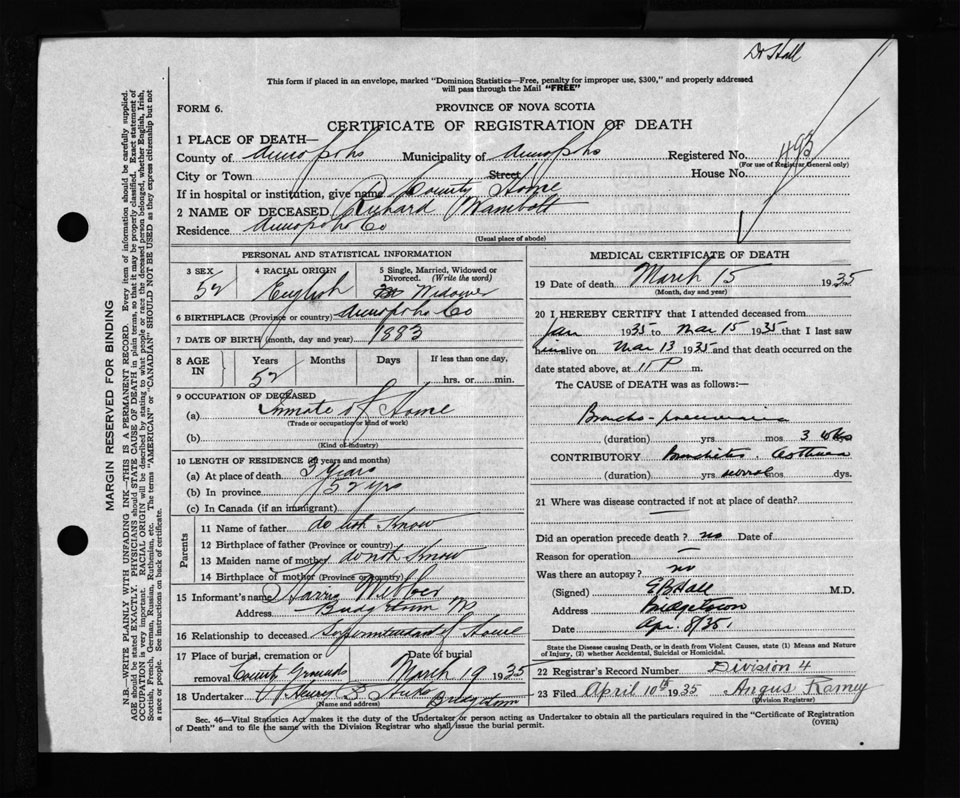 Dr Hall
This form if placed in an envelope, marked "Dominion Statistics—Free, penalty for improper use, $300," and properly addressed
will pass through the Mail "FREE"
FORM 6.
PROVINCE OF NOVA SCOTIA
CERTIFICATE OF REGISTRATION OF DEATH
1 PLACE OF DEATH—
County of Annapolis Municipality of Annapolis Registered No. 493
(For use of Registrar General only)
City or Town Street House No.
If in hospital or institution, give name County Home
2 NAME OF DECEASED Richard Wambolt
Residence Annapolis Co
(Usual place of abode)
PERSONAL AND STATISTICAL INFORMATION
3 SEX
4 RACIAL ORIGIN English
5 Single, Married, Widowed or Divorced. (Write the word) Widower
6 BIRTHPLACE (Province or country) Annapolis Co
7 DATE OF BIRTH (month, day and year) 1883
8 AGE IN Years Months Days If less than one day,
52 hrs. or min.
9 OCCUPATION OF DECEASED
(a) Inmate of Home
(Trade or occupation or kind of work)
(b)
(Kind of industry)
10 LENGTH OF RESIDENCE (in years and months)
(a) At place of death 3 Years
(b) In province 52 yrs
(c) In Canada (if an immigrant)
Parents
11 Name of father do not Know
12 Birthplace of father (Province or country)
13 Maiden name of mother do not Know
14 Birthplace of mother (Province or country)
15 Informant's name Harris Webber
Address Bridgetown NS
16 Relationship to deceased Superintendant of Home
17 Place of burial, cremation or removal County Grounds
Date of burial March 19 1935
18 Undertaker Henry B Hicks Bridgetown
(Name and address)
MEDICAL CERTIFICATE OF DEATH
19 Date of death March 15 1935
(Month, day and year)
20 I HEREBY CERTIFY that I attended deceased from
Jan 1935 to Mar 15 1935 that I last saw
him alive on Mar 13 1935 and that death occurred on the
date stated above, at 11 P m.
The CAUSE of DEATH was as follows:—
Broncho-pneumonia
(duration) yrs mos 3 wks
CONTRIBUTORY Bronchitis, Asthma
(duration) yrs several mos dys.
21 Where was disease contracted if not at place of death? —
Did an operation precede death? no Date of
Reason for operation —
Was there an autopsy? no
(Signed) Hall M.D.
Address Bridgetown
Date Apr. 8/35
State the Disease causing Death, or in death from Violent Causes, state (1) Means and Nature
of Injury, (2) whether Accidental, Suicidal or Homicidal.
22 Registrar's Record Number Division 4
23 Filed April 10th 1935 Angus Ramey
(Division Registrar)
Sec. 46—Vital Statistics Act makes it the duty of the Undertaker or person acting as Undertaker to obtain all the particulars required in the "Certificate of Registration
of Death" and to file the same with the Division Registrar who shall issue the burial permit.
(OVER)
MARGIN RESERVED FOR BINDING
N.B.—WRITE PLAINLY WITH UNFADING INK—THIS IS A PERMANENT RECORD. Every item of information should be carefully supplied.
AGE should be stated EXACTLY. PHYSICIANS should STATE CAUSE OF DEATH in plain terms, so that it may be properly classified. Exact statement of
OCCUPATION is very important. RACIAL ORIGIN will be described by stating to what people or race the deceased person belonged, whether English, Irish,
Scottish, French, German, Russian, Ruthenian, etc. The terms "AMERICAN" or "CANADIAN" SHOULD NOT BE USED as they express citizenship but not
a race or people. See instructions on back of certificate.